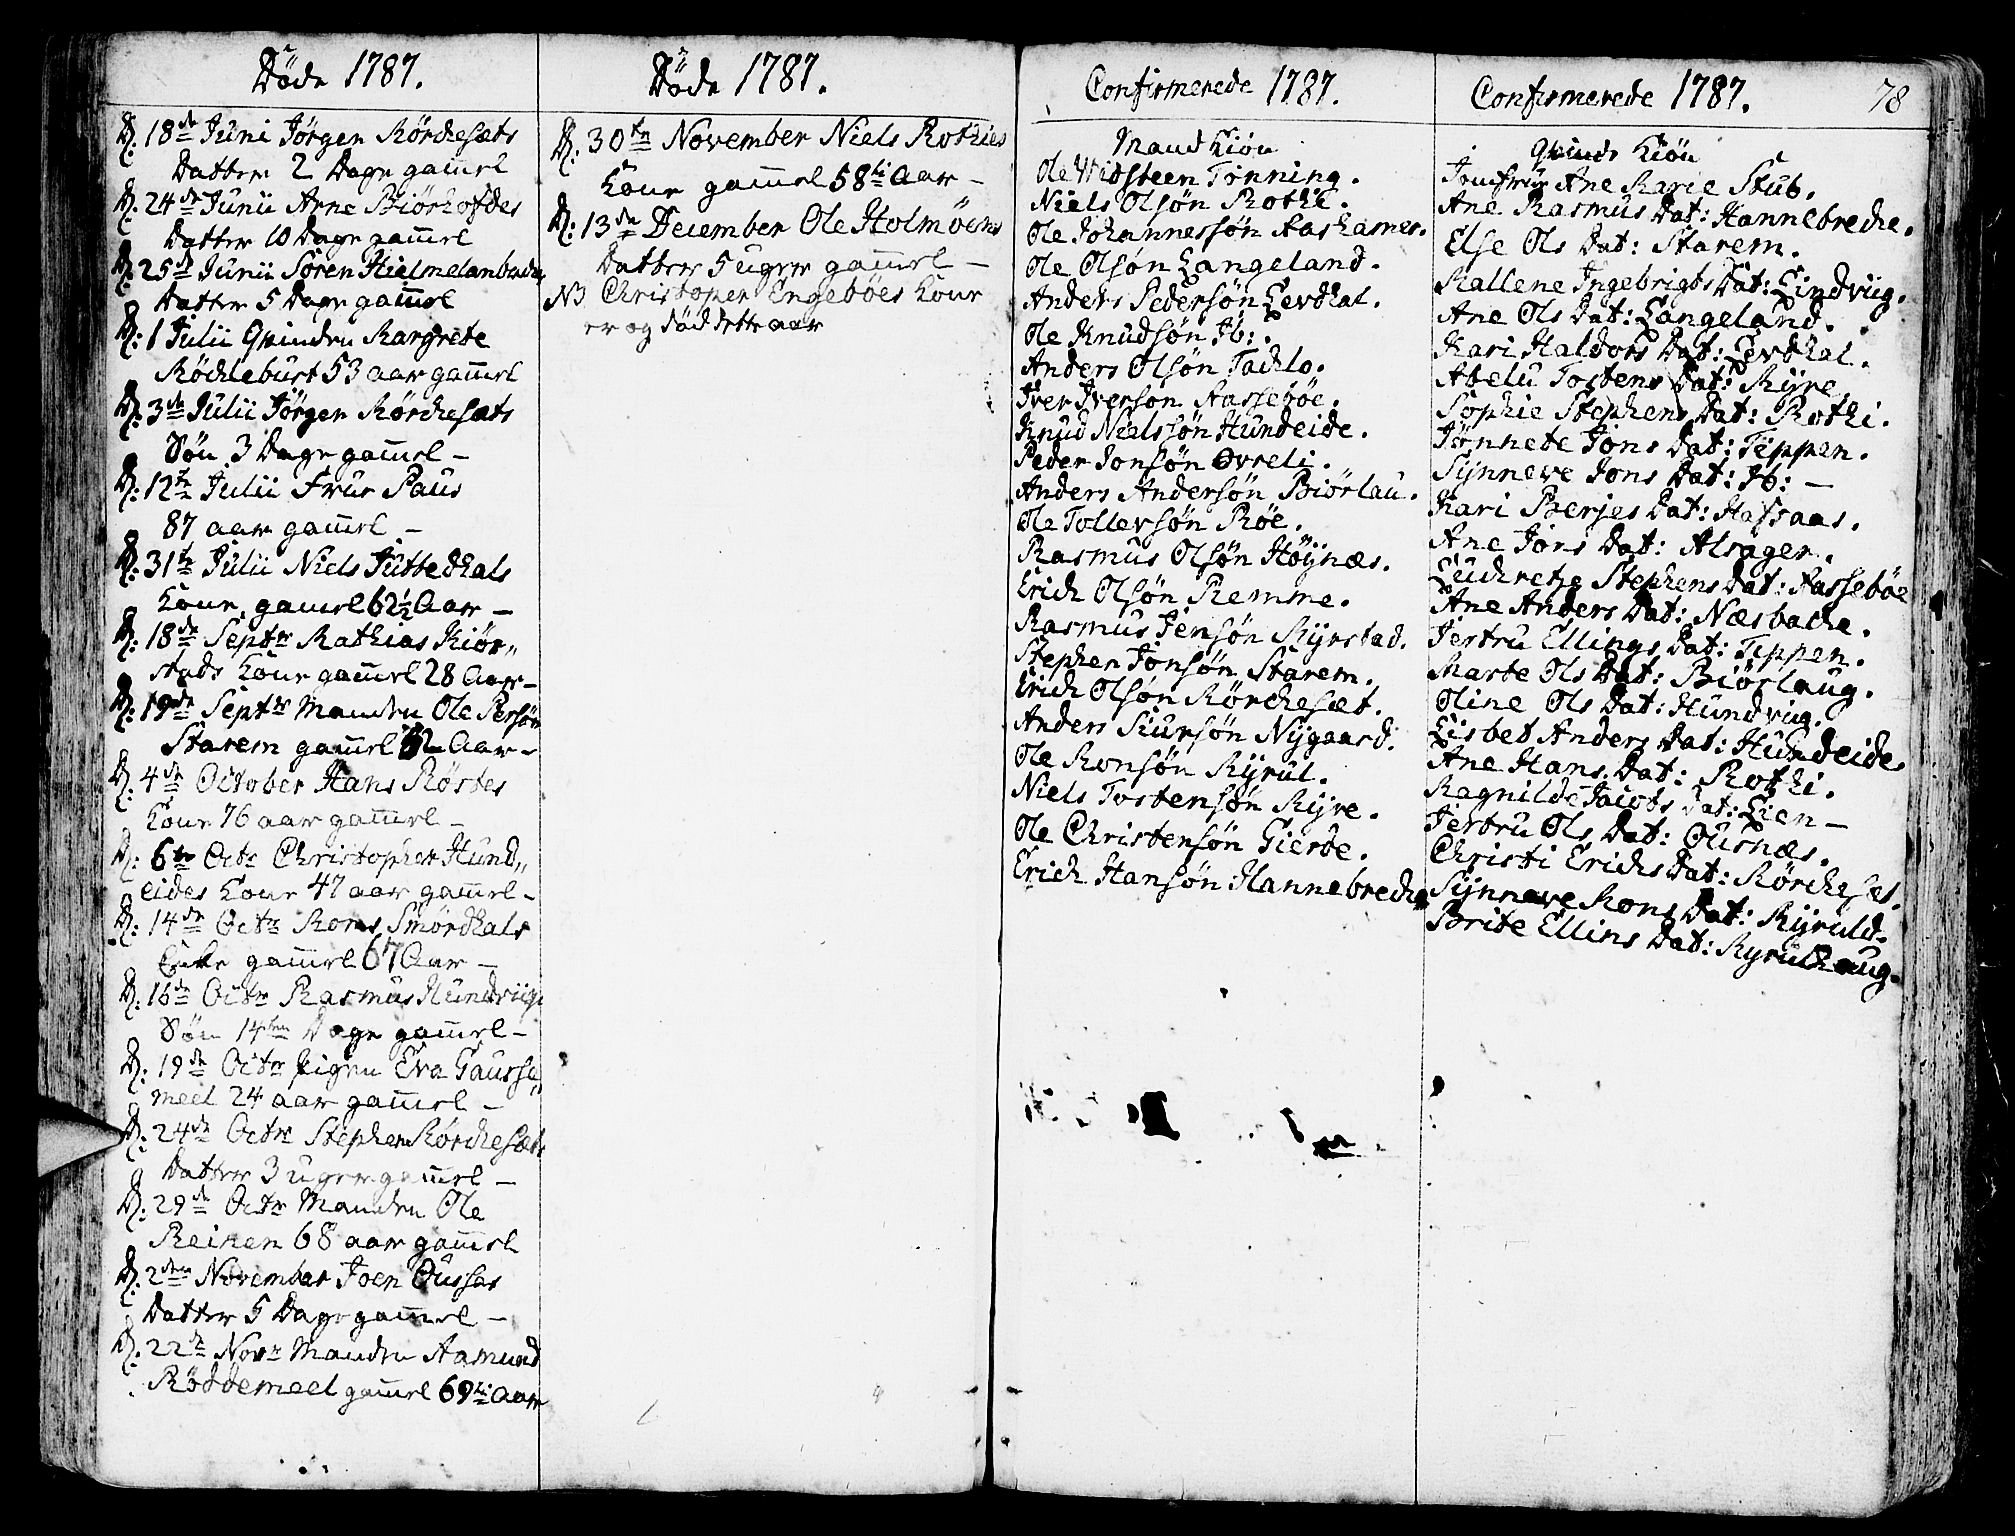 Döde 1787.
D: 18de Juni Jörgen Mörchesæts
Datter 2 Dage gam̅el
D: 24de Junii Arne Biörhofdes
Datter 10 Dage gam̅el
D: 25de Junii Sören Hielmelanbache
Datter 5 Dage gam̅el
D: 1 Julii Qvinden Margrete
Röchleburt 53 aar gam̅el
D: 3de Julii Jörgen Mörchesæts
Sön 3 Dage gam̅el –
D: 12te Julii Frue Paus
87 aar gam̅el –
D: 31te Julii Niels Juttedhals
Kone, gam̅el 62½ Aar –
D: 18de Septr Mathias Kiör„
stads Kone gam̅el 28 Aar –
D: 19de Septr Manden Ole Persön
Starem gam̅el Aar –
D: 4de October Hans Röstes
Kone 76 aar gam̅el –
D: 6te Octr Christopher Hund„
eides Kone 47 aar gam̅el –
D: 14de Octr Mons Smördhals
Enke gam̅el 67 Aar –
D: 16de Octr Rasmus Hundviigs
Sön 14ten Dage gam̅el –
D: 19de Octr pigen Eva Gausse„
meel 24 aar gam̅el –
D: 24de Octr Stephen Mörchesæts
Datter 3 uger gam̅el –
D: 29de Octr Manden Ole
Reinen 68 aar gam̅el
D: 2den November Joen Ousses
Datter 5 Dage gam̅el –
D: 22de Novr Manden Aamund
Röddemeel gam̅el 69ti Aar
Döde 1787.
D: 30te November Niels Rothies
Kone gam̅el 58ti Aar –
D: 13de December Ole Holmöens
Datter 5 uger gam̅el –
NB Christopher Engeböes Kone
er og död dette aar
Confirmerede 1787.
Mand Kiön
Ole Widsteen Tönning.
Niels Olsön Rothi.
Ole Johannessön Aaskasnes.
Ole Olsön Langeland.
Anders Pedersön Levdhal.
Ole Knudsön Ib:.
Anders Olsön Tachlo.
Iver Iverson Aasseböe.
Knud Nielssön Hundeide.
Peder Jonsön Øvreli.
Anders Andersön Biörlau.
Ole Tollevsön Röe.
Rasmus Olsön Höÿnæs.
Erich Olsön Remme.
Rasmus Jensön Myrstad.
Stephen Jonsön Starem.
Erich Olsön Mörchesæt.
Anders Siursön Nÿgaard.
Ole Monsön Myrul.
Niels Tostensön Myre.
Ole Christensön Gierde.
Erich Hansön Hannebreche
Confirmerede 1787.
78
Qvinde Kiön
Jomfrue Ane Marie Stub.
Ane Rasmus Dat: Hannebreche.
Else Ols Dat: Starem.
Mallene Ingebrigts Dat: Lindviig.
Ane Ols Dat: Langeland.
Kari Haldors Dat: Levdhal.
Abelu Tostens Dat: Myre.
Sophie Stephens Dat: Rothi.
Jönnete Jons Dat: Teppen.
Synneve Jons Dat: Ib: –
Kari Berjes Dat: Hafsaas.
Ane Jons Dat: Alsager.
Luchretze Stephens Dat: Aasseböe
Ane Anders Dat: Næsbache.
Jertru Ellings Dat: Teppen.
Marte Ols Dat: Biörlaug.
Oline Ols Dat: Hundviig.
Lisbet Anders Dat: Hundeide.
Ane Hans Dat: Rothi.
Ragnilde Jacobs Dat: Lien –
Jertru Ols Dat: Ousnæs.
Christi Erichs Dat: Mörcheset.
Synneve Mons Dat: Myruld.
Brite Ellins Dat: Myrulhaug.